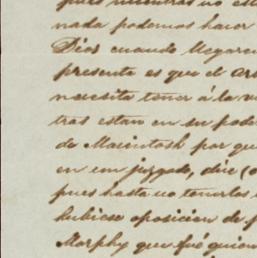 pues mientras no est
nada podemos hacer
Dios cuando llegare
presente es que el ar
necesita tener á la v
tras estan en su pode
de Macintosh por qu
en un juzgado, due (o
pues hasta no tenerlos
hubiese oposicion de p
Morphy que fué quien